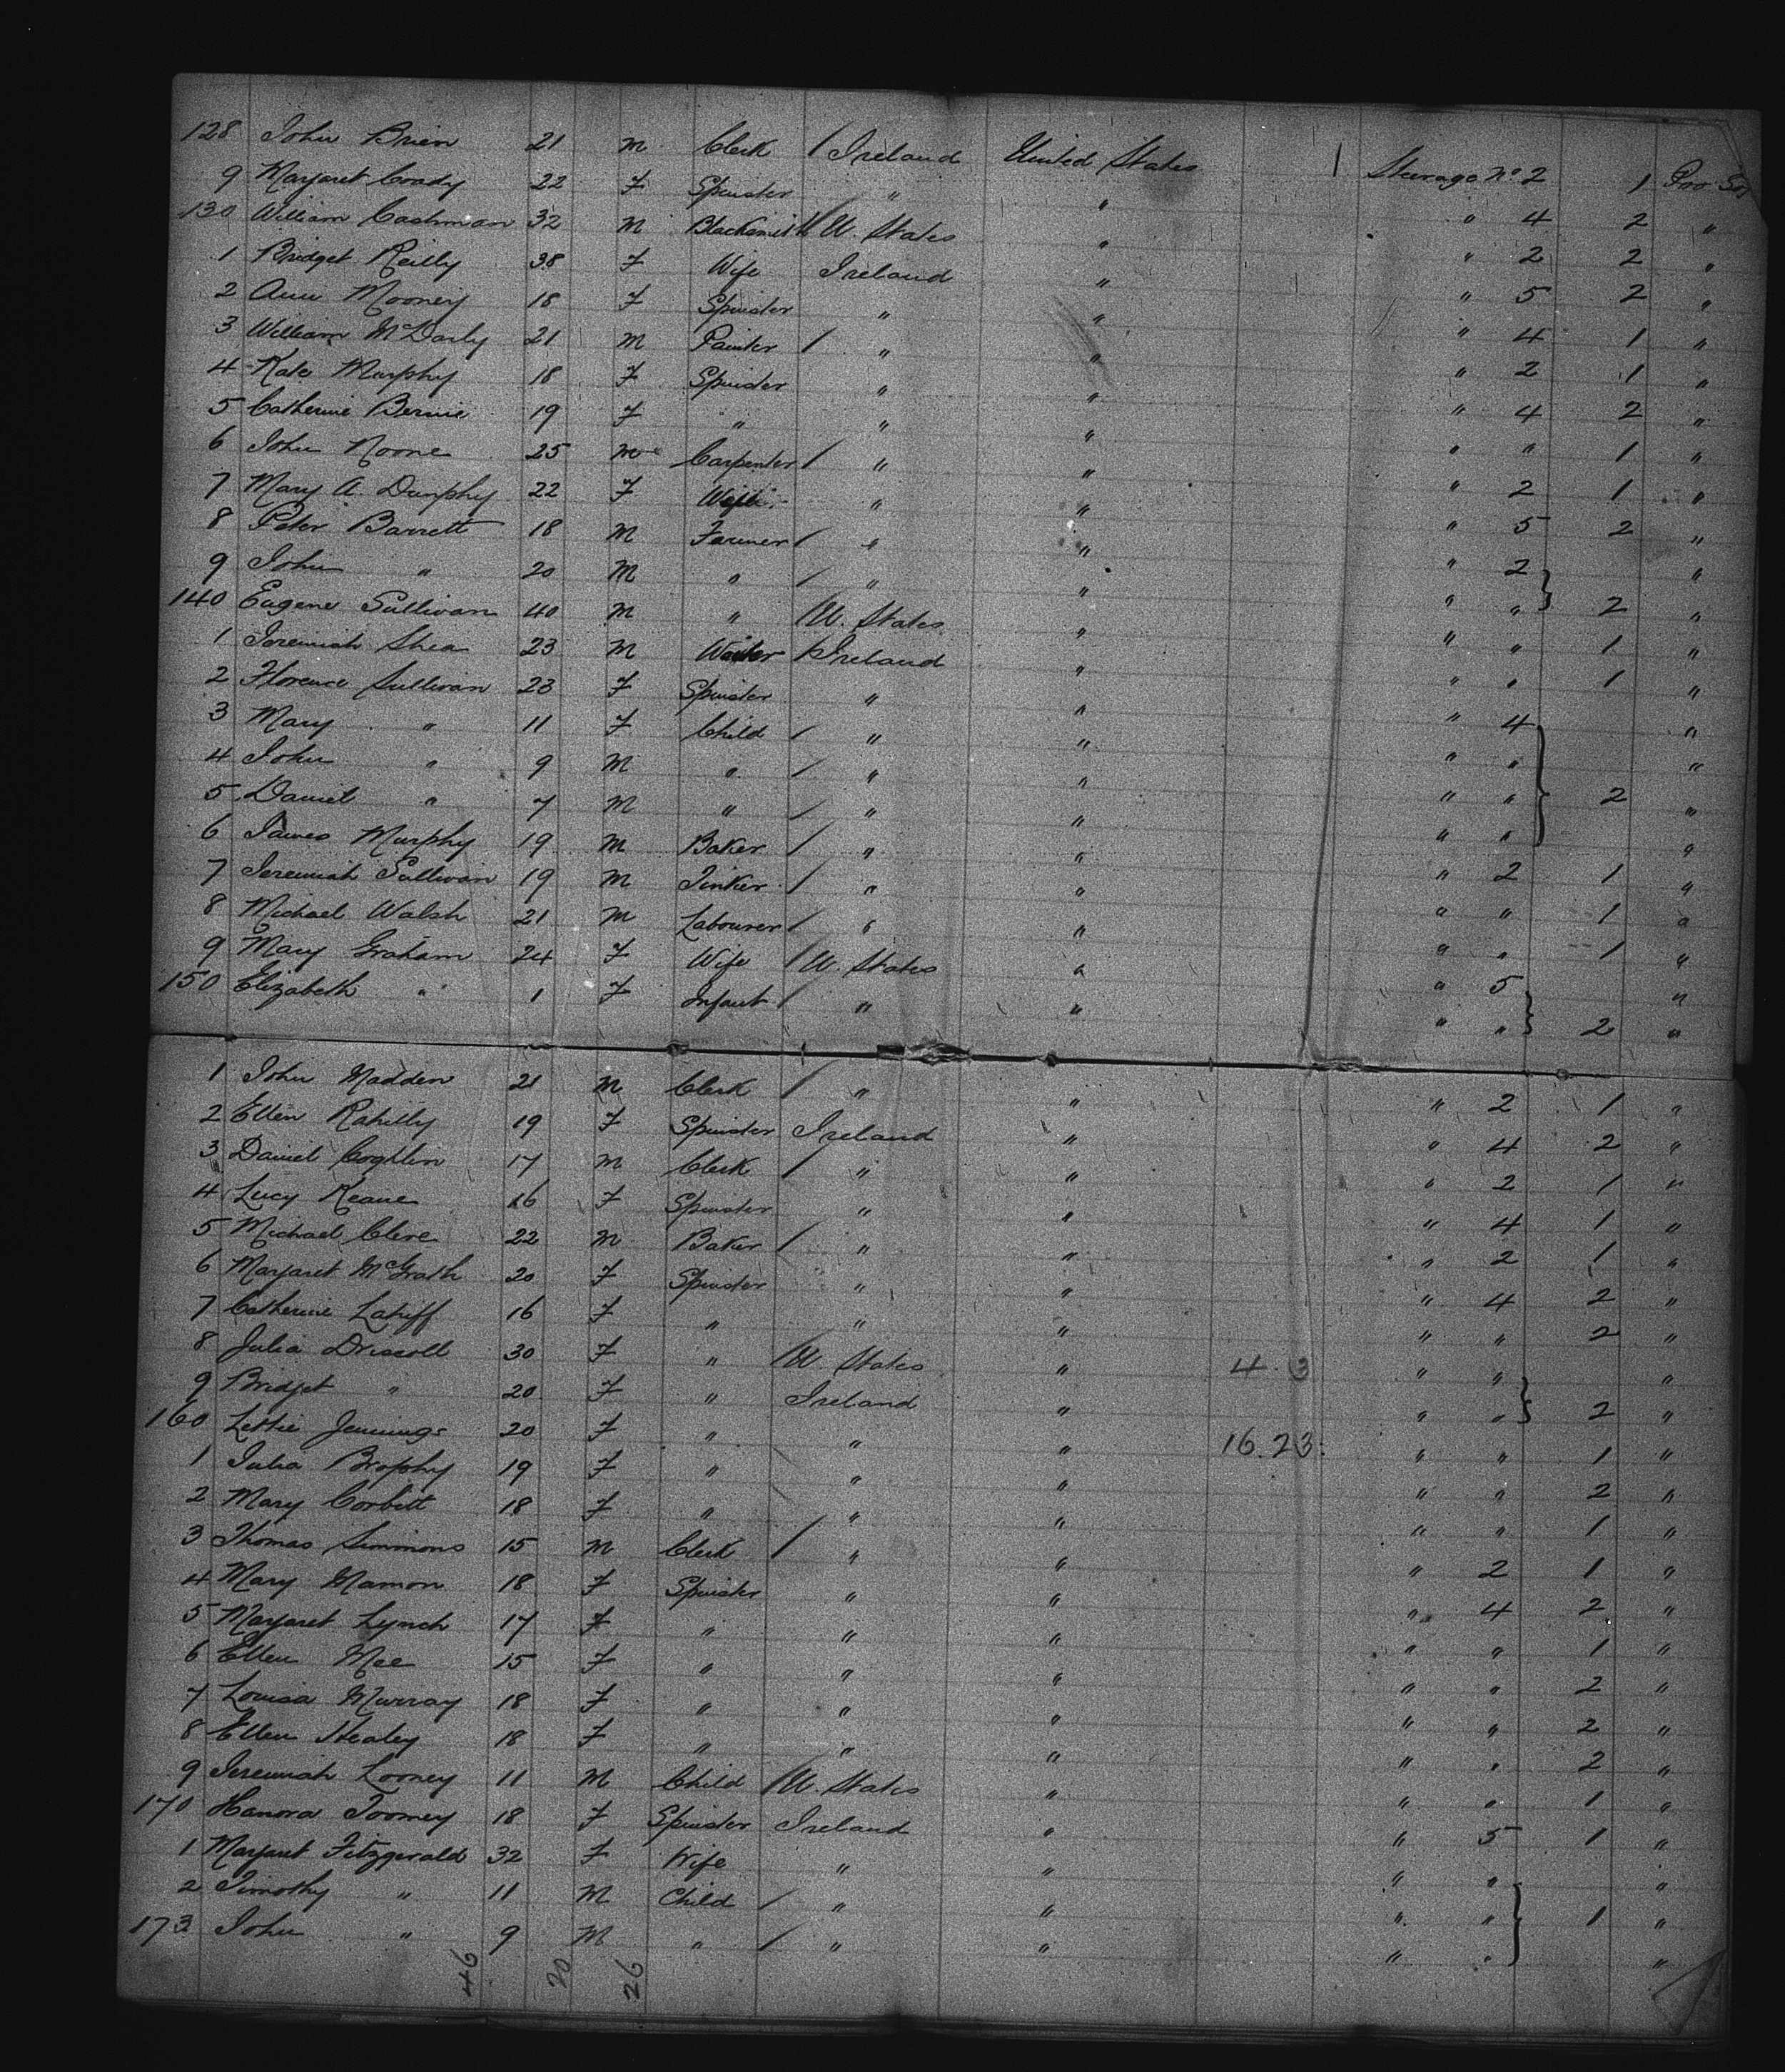 128 John Brien 21 M Clerk / Ireland United States / Steerage No 2 1 Pro Soj
9 Margaret Coady 22 F Spinster " " " 4 2 "
130 William Cashman 32 M Blacksmith / U. States " " 2 2 "
1 Bridget Reilly 38 F Wife Ireland " " 5 2 "
2 Ann Mooney 18 F Spinster " " " 4 1 "
3 William McDarly 21 M Painter / " " " 2 1 "
4 Kate Murphy 18 F Spinster " " " 4 2 "
5 Catherine Bernie 19 F " " " " " 1 "
6 John Noone 25 M Carpenter / " " " 2 1 "
7 Mary A. Dunphy 22 F Wife " " " 5 2 "
8 Peter Barrett 18 M Farmer / " " " 2 "
9 John " 20 M " / " " " " } 2 "
140 Eugene Sullivan 40 M " / U. States " " " 1 "
1 Jeremiah Shea 23 M Waiter / Ireland " " " 1 "
2 Florence Sullivan 23 F Spinster " " " 4 "
3 Mary " 11 F Child / " " " " "
4 John " 9 M " / " " " " } 2 "
5 Daniel " 7 M " / " " " " "
6 James Murphy 19 M Baker / " " " 2 1 "
7 Jeremiah Sullivan 19 M Tinker / " " " " 1 "
8 Michael Walsh 21 M Labourer / " " " " 1 "
9 Mary Graham 24 F Wife / U. States " " 5 "
150 Elizabeth " 1 F Infant / " " " " } 2 "
1 John Madden 21 M Clerk / " " " 2 1 "
2 Ellen Rahilly 19 F Spinster Ireland " " 4 2 "
3 Daniel Coghlin 17 M Clerk / " " " 2 1 "
4 Lucy Keane 16 F Spinster " " " 4 1 "
5 Michael Clere 22 M Baker / " " " 2 1 "
6 Margaret McGrath 20 F Spinster " " " 4 2 "
7 Catherine Lahiff 16 F " " " " " 2 "
8 Julia Driscoll 30 F " / U States " 4. 3 " " "
9 Bridget " 20 F " Ireland " " " } 2 "
160 Lettie Jennings 20 F " " " 16.23. " " 1 "
1 Julia Brophy 19 F " " " " " 2 "
2 Mary Corbett 18 F " " " " " 1 "
3 Thomas Simmons 15 M Clerk / " " " 2 1 "
4 Mary Mamon 18 F Spinster " " " 4 2 "
5 Margaret Lynch 17 F " " " " " 1 "
6 Ellen Mee 15 F " " " " " 2 "
7 Louisa Murray 18 F " " " " " 2 "
8 Ellen Healey 18 F " " " " " 2 "
9 Jeremiah Looney 11 M Child / U. States " " " 1 "
170 Hanora Toomey 18 F Spinster Ireland " " 5 1 "
1 Margaret Fitzgerald 32 F Wife " " " " "
2 Timothy " 11 M Child / " " " " } 1 "
173 John " 9 M " / " " " " "
46 20 26